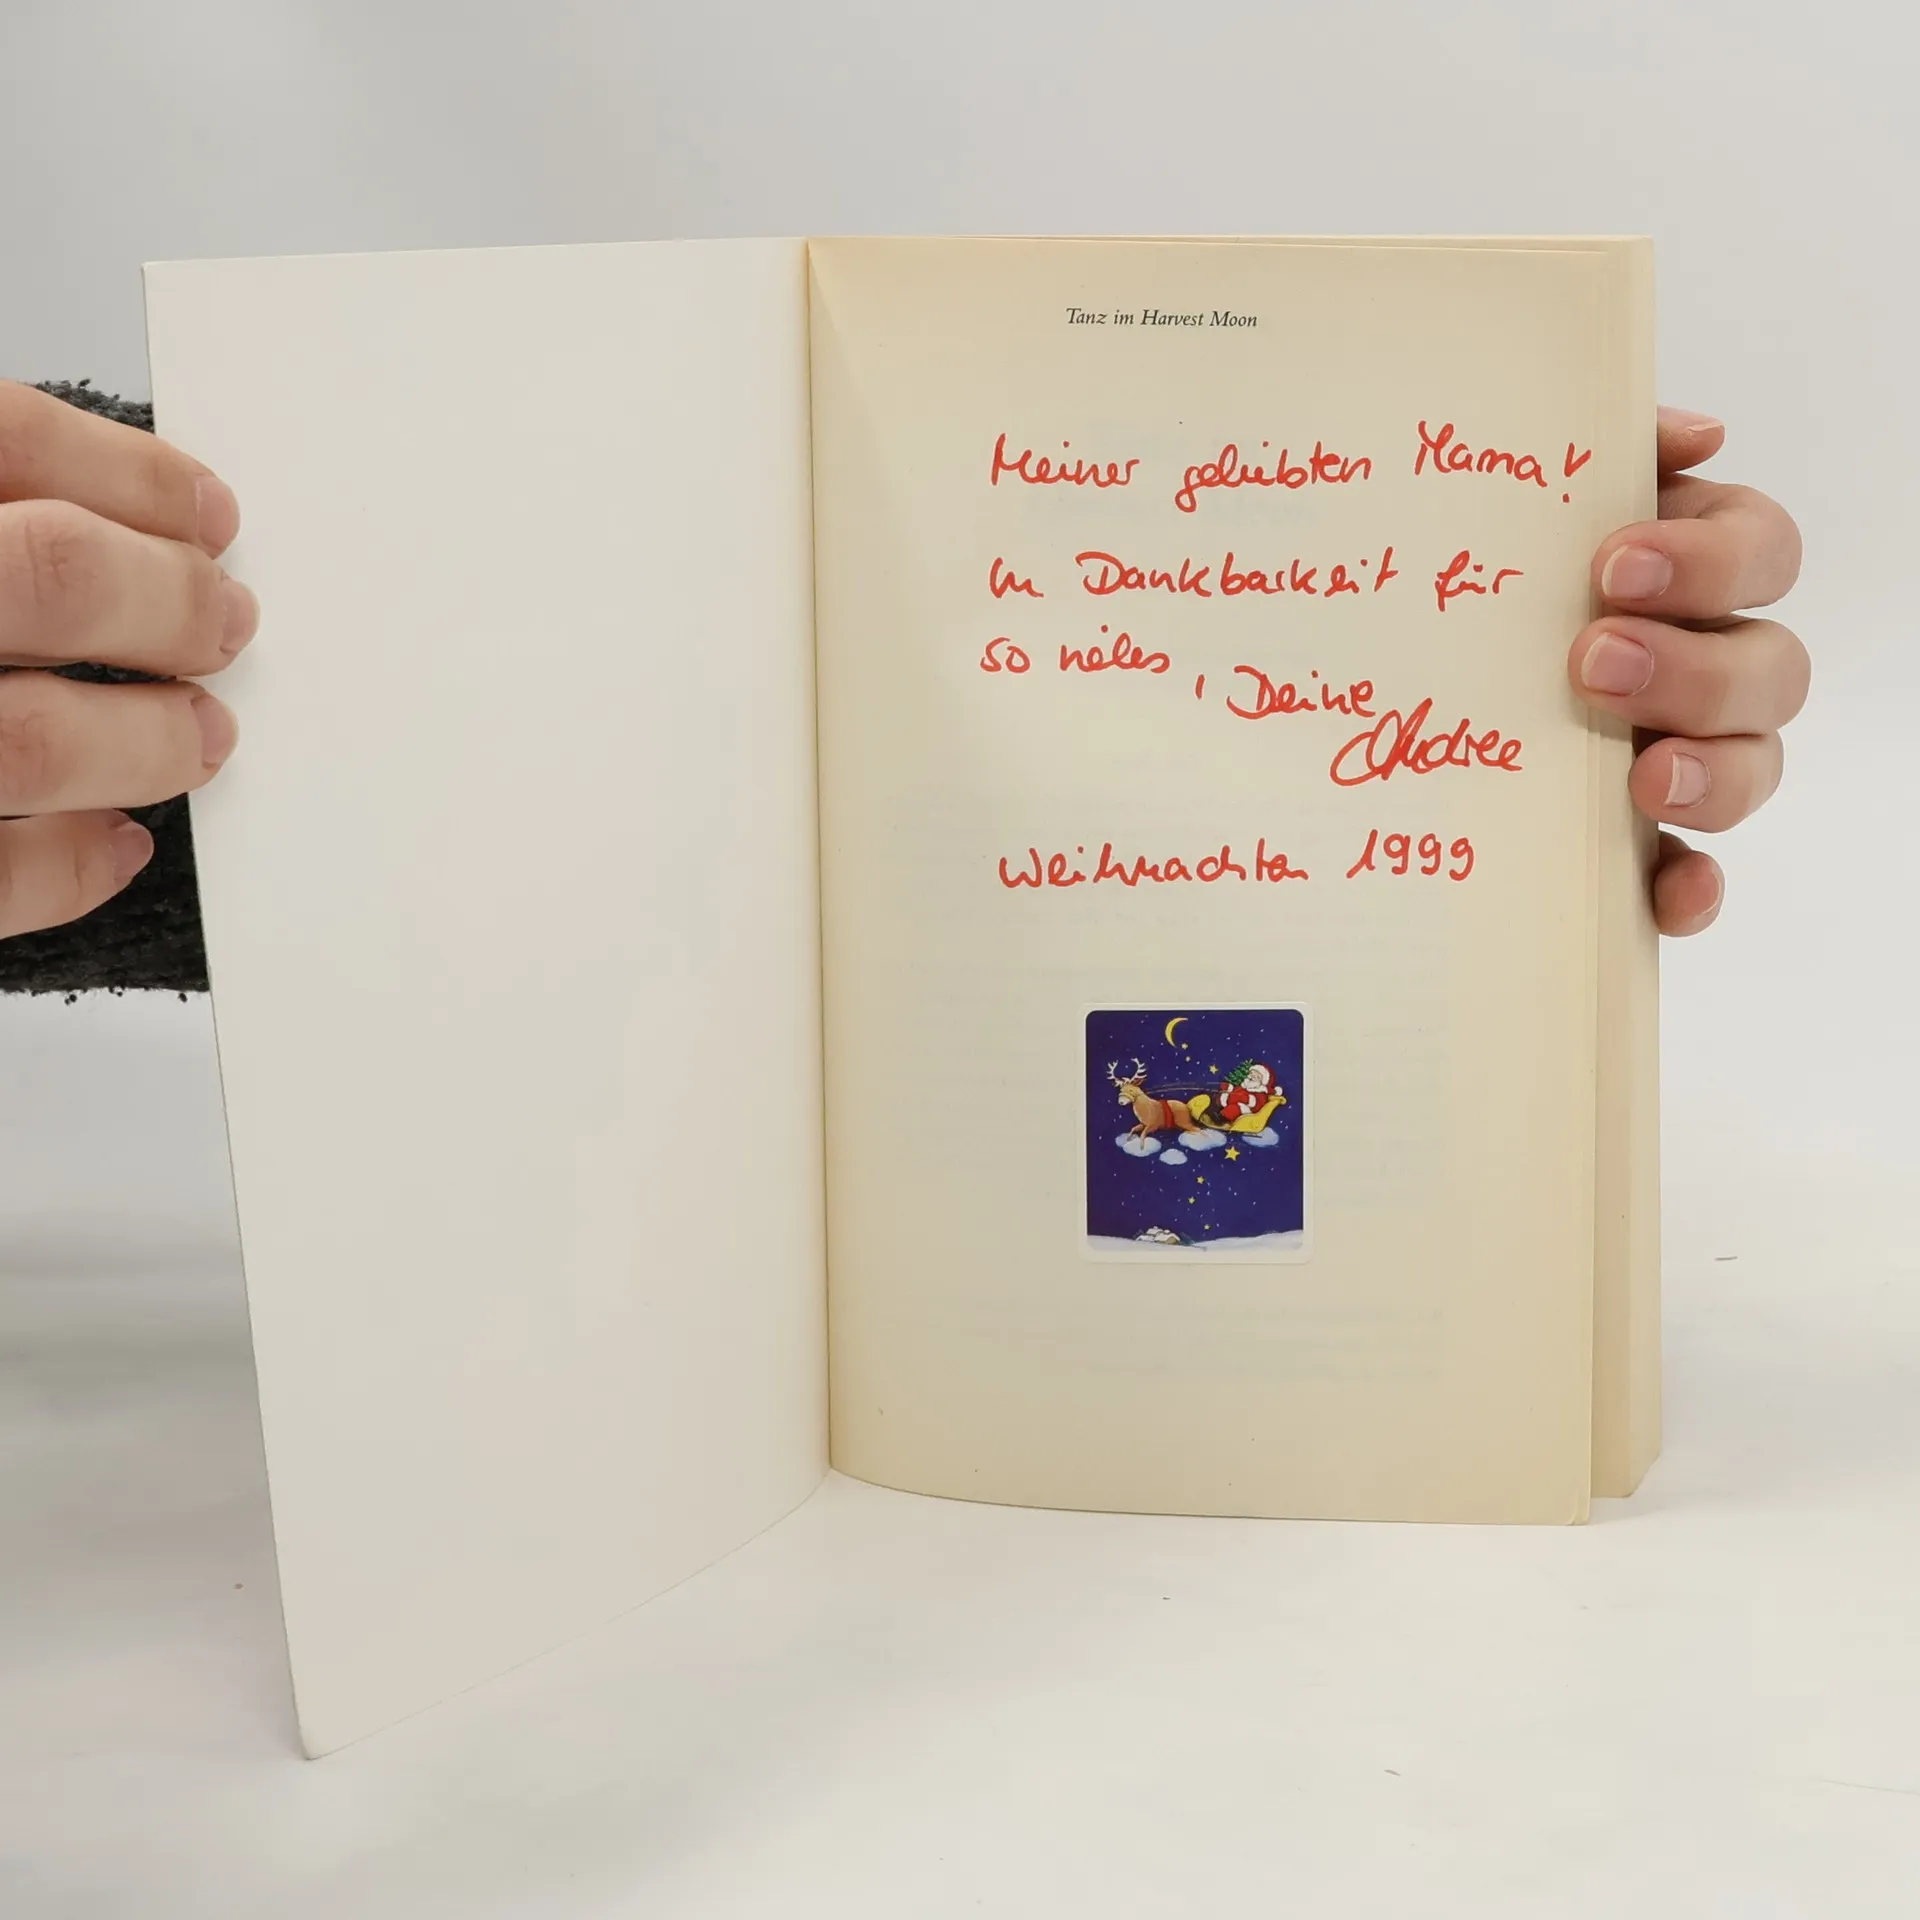 Tanz im Harvest Moon
Meiner geliebten Mama!
In Dankbarkeit für
so vieles, Deine
Andree
Weihnachten 1999